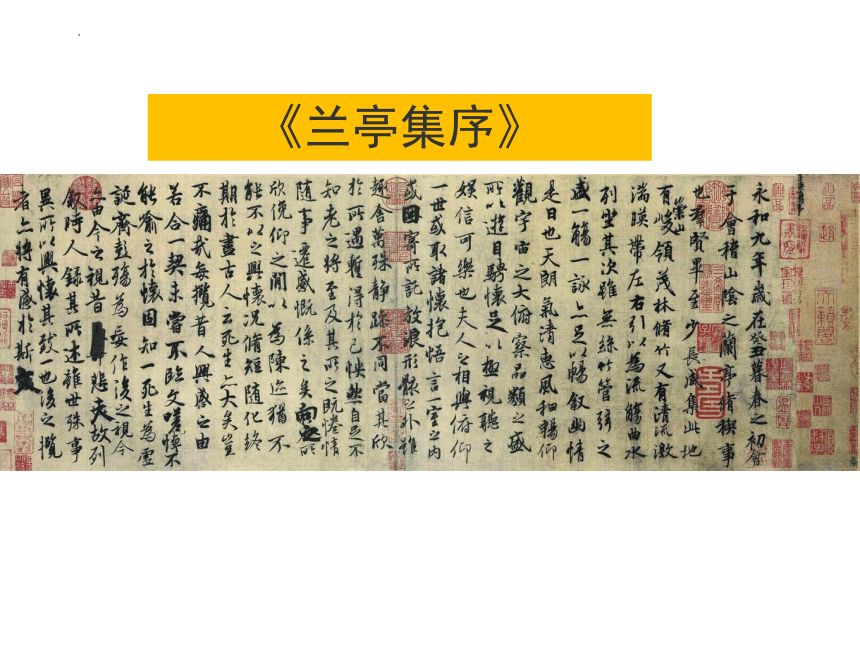 《兰亭集序》
永和九年歲在癸丑暮春之初會
于會稽山陰之蘭亭脩稧事
也羣賢畢至少長咸集此地
有崇山峻領茂林脩竹又有清流激
湍暎帶左右引以為流觴曲水
列坐其次雖無絲竹管弦之
盛一觴一詠亦足以暢敘幽情
是日也天朗氣清惠風和暢仰
觀宇宙之大俯察品類之盛
所以遊目騁懷足以極視聽之
娛信可樂也夫人之相與俯仰
一世或取諸懷抱悟言一室之內
或因寄所託放浪形骸之外雖
趣舍萬殊靜躁不同當其欣
於所遇蹔得於己怏然自足不
知老之將至及其所之既惓情
隨事遷感慨係之矣向之所
欣俛仰之閒以為陳迹猶不
能不以之興懷況脩短隨化終
期於盡古人云死生亦大矣豈
不痛哉每攬昔人興感之由
若合一契未嘗不臨文嗟悼不
能喻之於懷固知一死生為虛
誕齊彭殤為妄作後之視今
亦由今之視昔悲夫故列
敘時人錄其所述雖世殊事
異所以興懷其致一也後之攬
者亦將有感於斯文